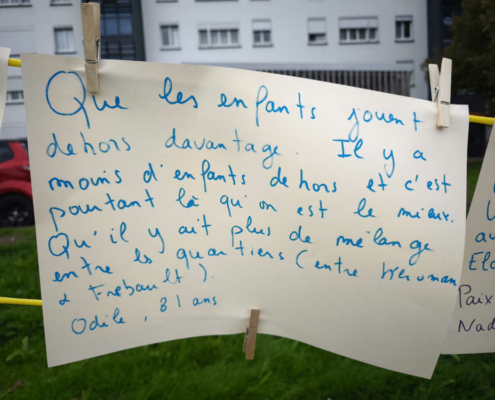 Que les enfants jouent
dehors davantage. Il y a
moins d'enfants dehors et c'est
pourtant là qu'on est le mieux.
Qu'il y ait plus de mélange
entre les quartiers (entre
& Frébault).
Odile, 81 ans
Paix
Nad